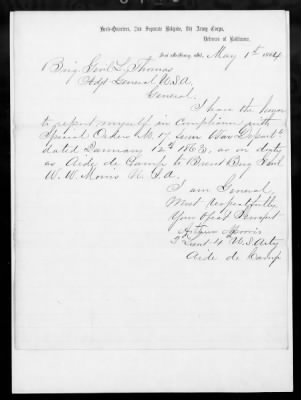 Head-Quarters, 2nd Separate Brigade, 8th Army Corps,
Defences of Baltimore.
Fort McHenry, Md., May 1st 1864
Brig. Genl L. Thomas
Adjt General U.S.A.
General.
I have the honor
to report myself in compliance with
Special Orders No. 17 from War Depart
dated January 12th 1863, as on duty
as Aide de Camp to Brevet Brig Genl
W. W. Morris U.S.A.
I am General
Most respectfully
Your Obedt Servant
Arthur Morris
1st Lieut 4th U.S. Arty
Aide de Camp